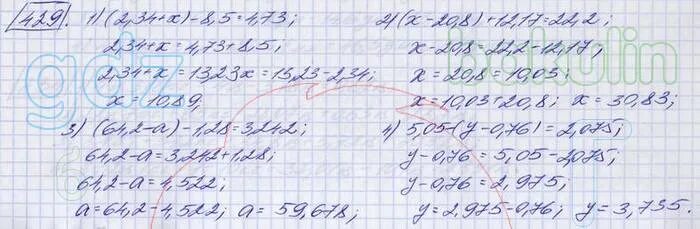 429.
1) (2,34+x)-8,5=4,73;
2,34+x=4,73+8,5;
2,34+x=13,23 x=13,23-2,34;
x=10,89;
2) (x-20,8)+12,17=22,2;
x-20,8=22,2-12,17;
x=20,8=10,03;
x=10,03+20,8; x=30,83;
3) (64,2-a)-1,28=3,242;
64,2-a=3,242+1,28;
64,2-a=4,522;
a=64,2-4,522; a=59,678;
4) 5,05-(y-0,76)=2,075;
y-0,76=5,05-2,075;
y-0,76=2,975;
y=2,975-0,76; y=3,735.
gdz